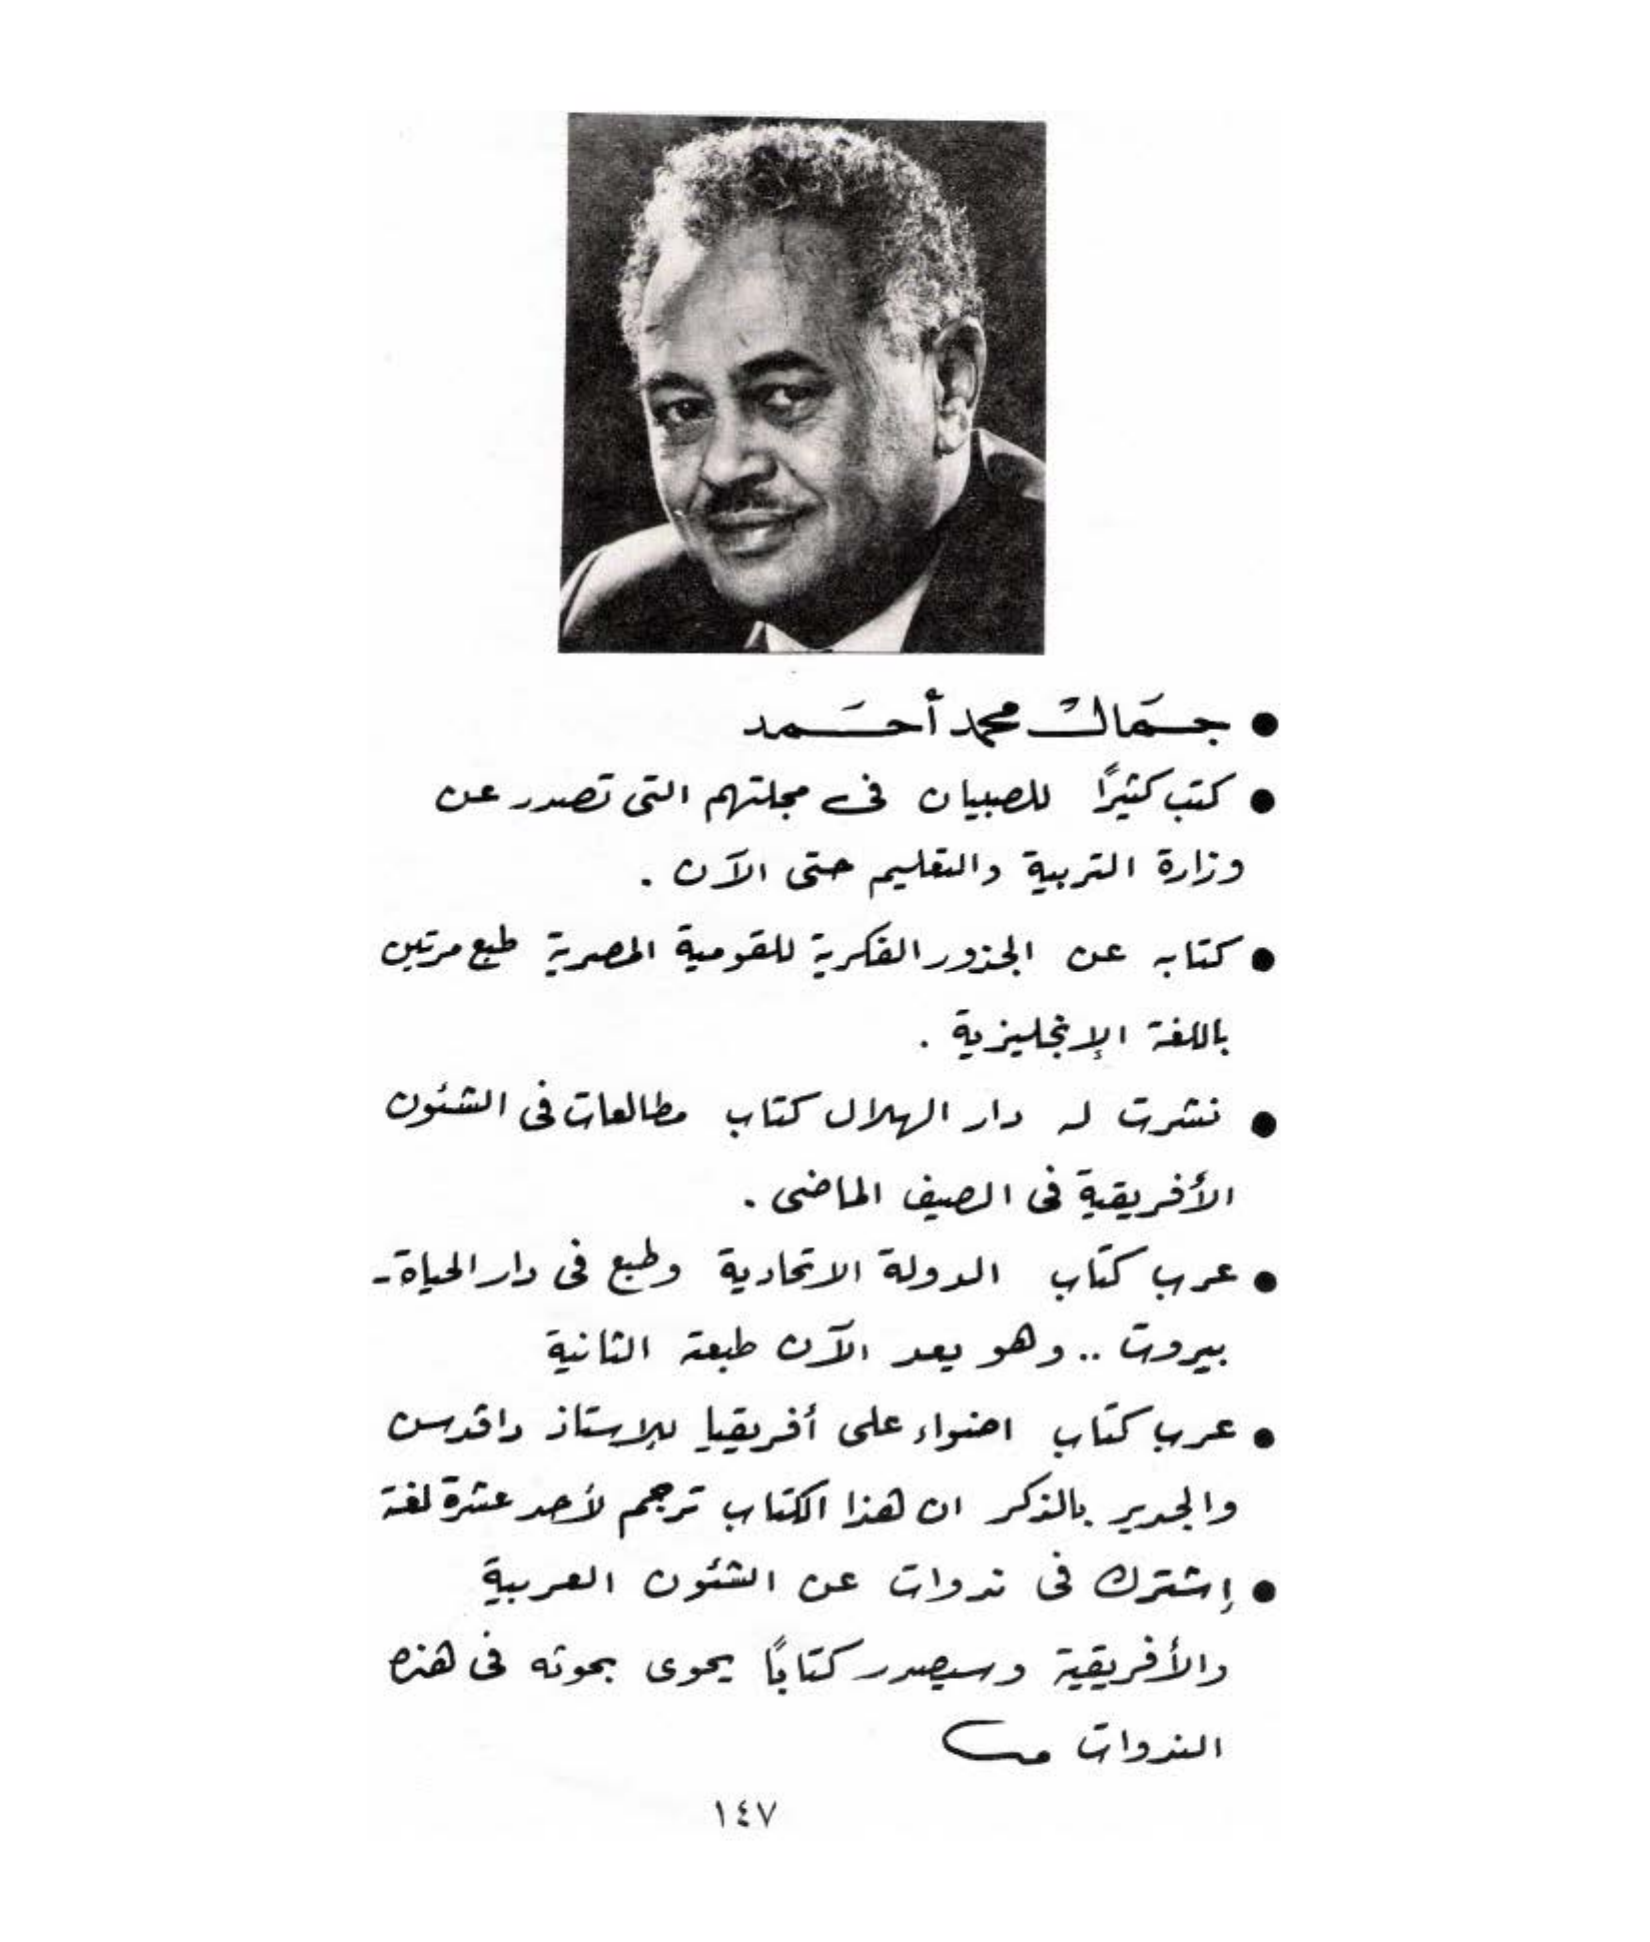 ● جمال محمد أحمد
● كتب كثيرًا للصبيان في مجلتهم التى تصدر عن
وزارة التربية والتعليم حتى الآن .
● كتابه عن الجذور الفكرية للقومية المصرية طبع مرتين
باللغة الإنجليزية .
● نشرت له دار الهلال كتاب مطالعات فى الشئون
الأفريقية فى الصيف الماضى .
● عرب كتاب الدولة الاتحادية وطبع فى دار الحياة -
بيروت .. وهو يعد الآن طبعة الثانية
● عرب كتاب اضواء على أفريقيا للاستاذ دافدسن
والجدير بالذكر ان هذا الكتاب ترجم لأحد عشرة لغة
● إشترك فى ندوات عن الشئون العربية
والأفريقية وسيصدر كتابًا يحوى بحوثه فى هذه
الندوات
١٤٧